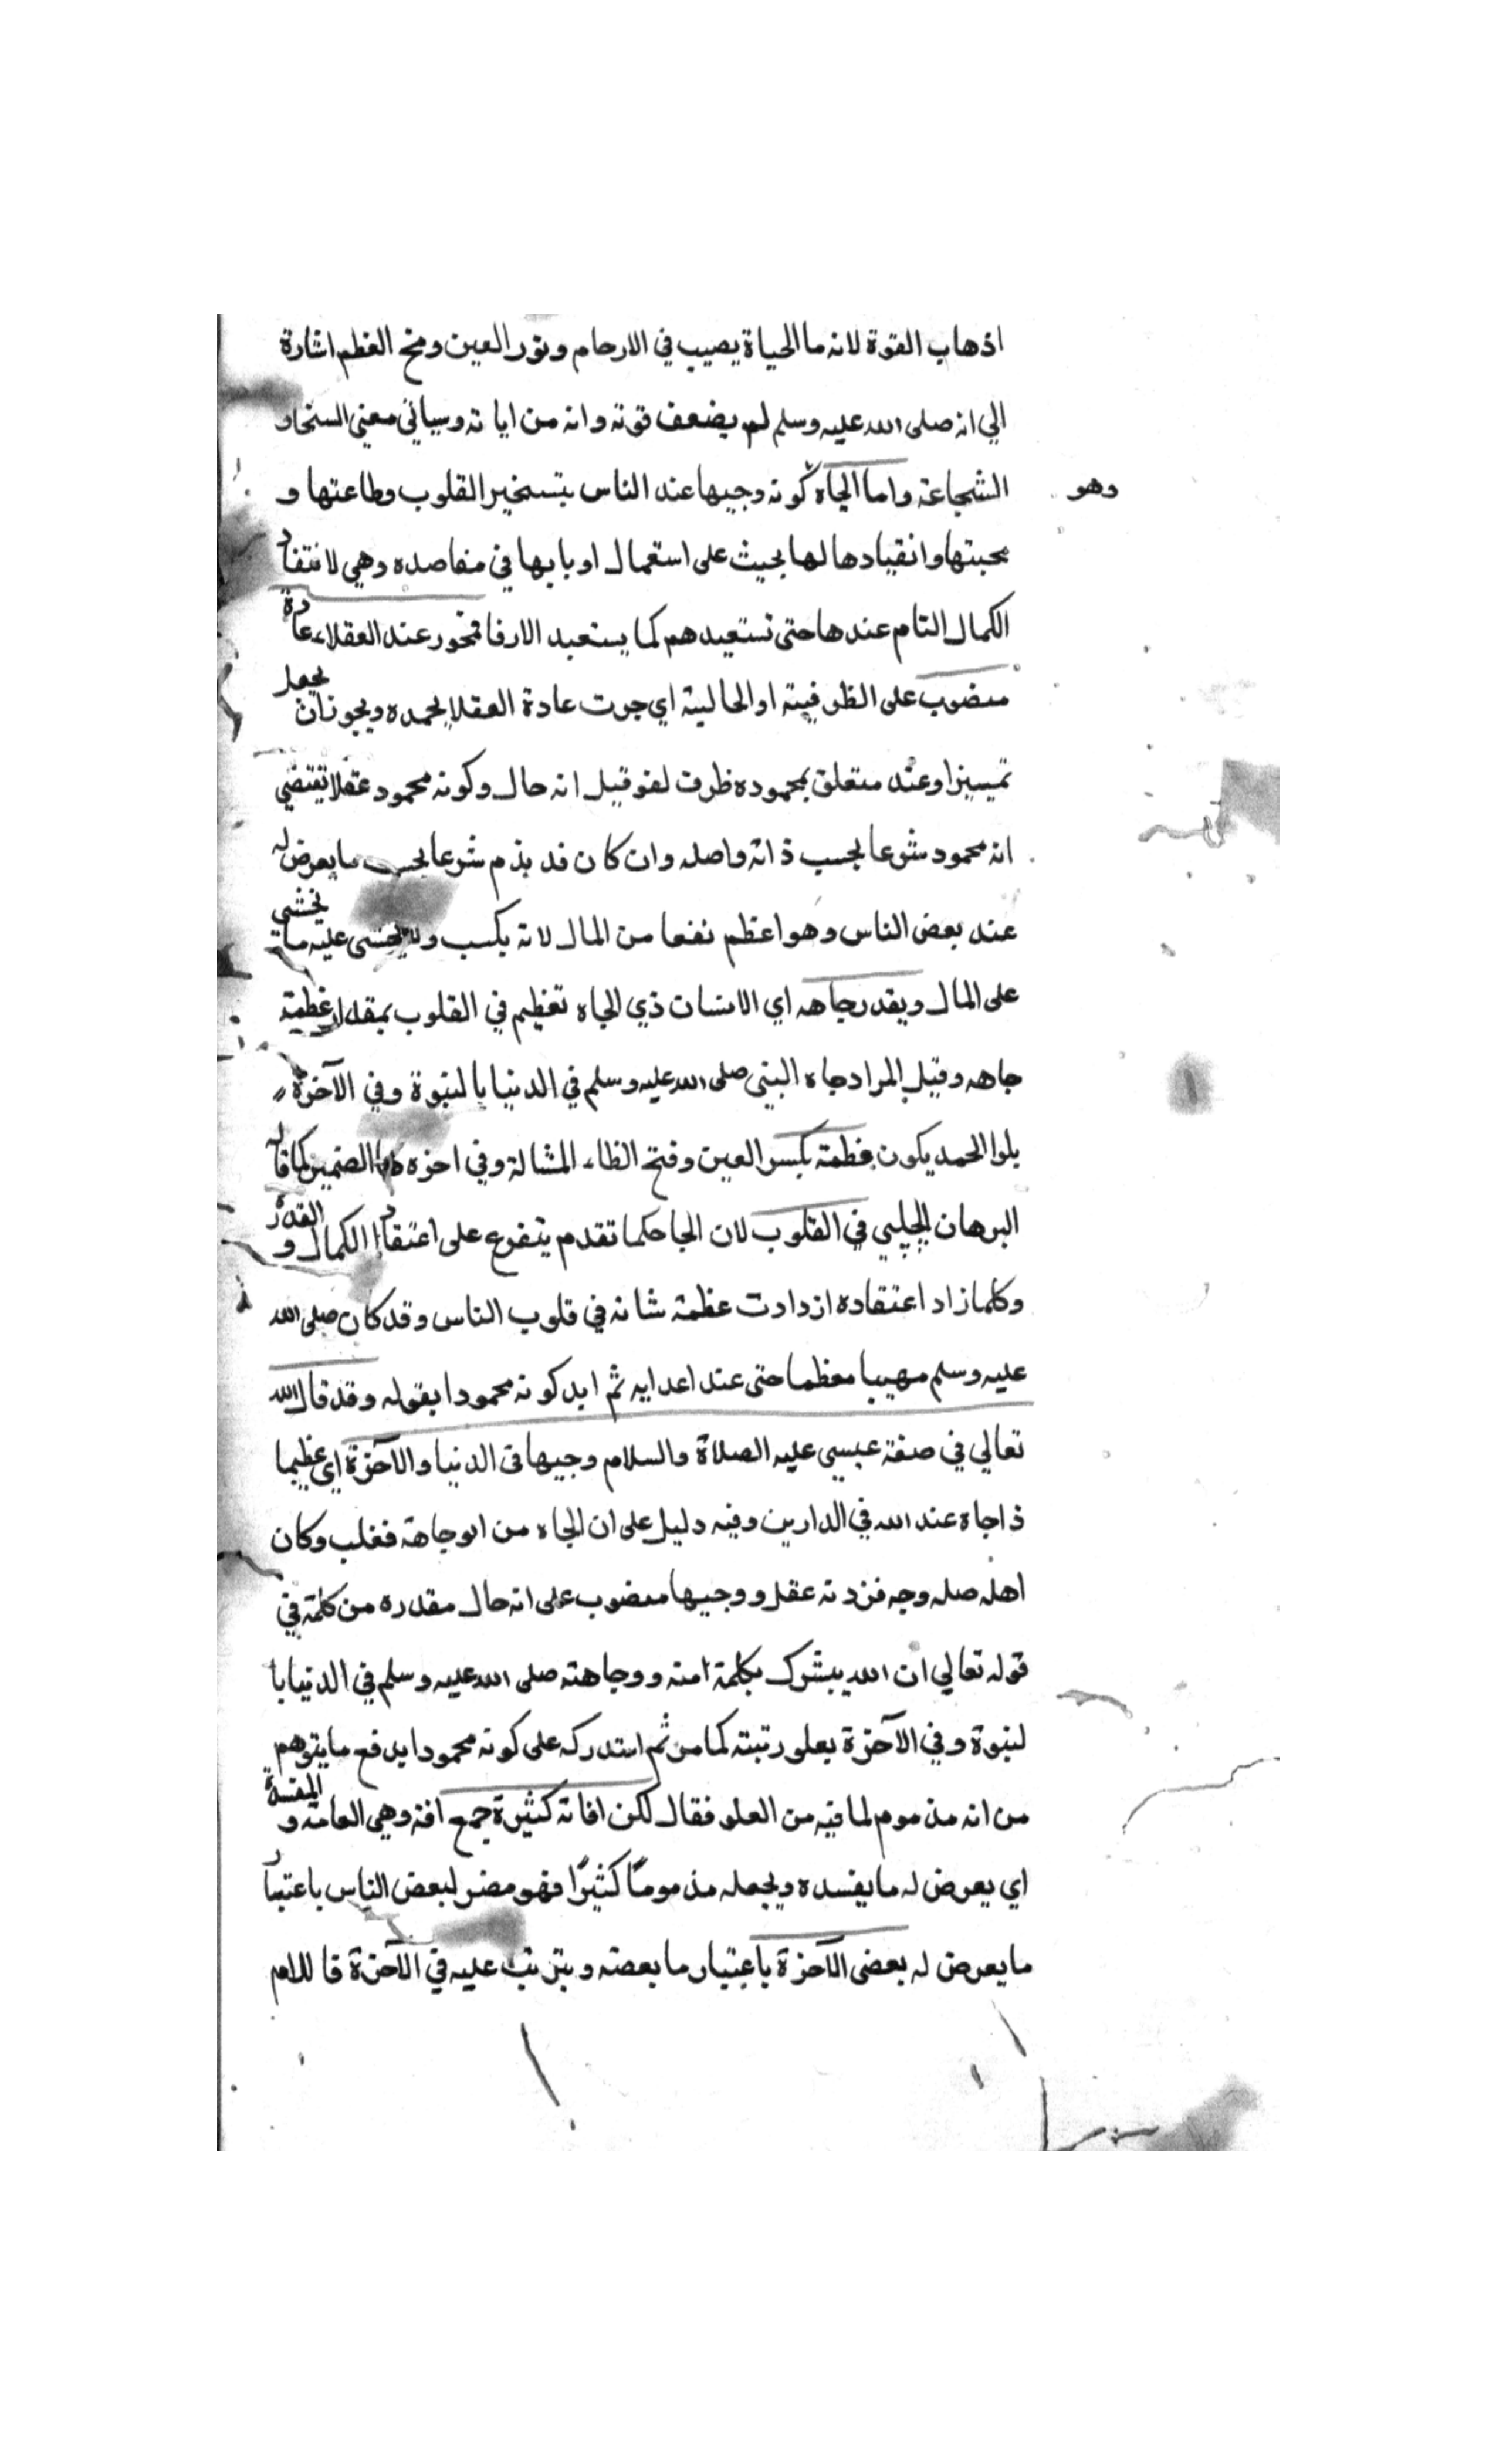 اذهاب القوة لانه ما الحياة يصيب في الارحام ونور العين ومخ العظم اشارة
الي انه صلى الله عليه وسلم لم يضعف قوته وانه من اياته وسياتي معني السخاو
الشجاعة واما الجاه كونه وجيها عند الناس بتسخير القلوب وطاعتها و
وهو
محبتها وانقيادها لها بحيث على استعمال اربابها في مقاصده وهي لاعتقاد
الكمال التام عندها حتى تستعبدهم كما يستعبد الارقا فمحمود عند العقلاء عادة
منصوب على الظرفية او الحالية اي جرت عادة العقلا بحمده ويجوز ان يجعل
تمييزا وعند متعلق بمحموده ظرف لغو قيل انه حال وكونه محمود عقلا تقتضي
انه محمود شرعا بحسب ذاته واصله وان كان قد يذم شرعا بحسب ما يعرض له
عند بعض الناس وهو اعظم نفعا من المال لانه يكسب ولا يخشى عليه ما يخشي
على المال وبقدر جاهه اي الانسان ذي الجاه تعظيم في القلوب بمقدار عظمة
جاهه وقيل المراد جاه النبي صلى الله عليه وسلم في الدنيا بالنبوة وفي الآخرة
بلوا الحمد يكون عظمة بكسر العين وفتح الظاء المشالة وفي اخره الضمير كما قاله
البرهان الحلبي في القلوب لان الجاه كما تقدم يتفرع على اعتقاد الكمال و القدر
وكلما زاد اعتقاده ازدادت عظمة شانه في قلوب الناس وقد كان صلى الله
عليه وسلم مهيبا معظما حتى عند اعدايه ثم ايد كونه محمودا بقوله وقد قال الله
تعالي في صفة عيسى عليه الصلاة والسلام وجيها في الدنيا والآخرة اي عظيما
ذا جاه عند الله في الدارين وفيه دليل على ان الجاه من الوجاهة فغلب وكان
اهله صله وجه فزدته عفل ووجيها منصوب على انه حال مقدره من كلمة في
قوله تعالي ان الله يبشرك بكلمة منه ووجاهته صلى الله عليه وسلم في الدنيا با
لنبوة وفي الآخرة بعلو رتبته كما من ثم استدركه على كونه محمودا يدفع ما يتوهم
من انه مذموم لما فيه من العلو فقال لكن افاته كثيرة جمع افة وهي العامة و المفسدة
اي يعرض له ما يفسده ويجعله مذموما كثيرا فهو مضر لبعض الناس باعتبار
ما يعرض له بعضي الآخرة باعتبار ما يعصته ويترتب عليه في الآخرة فاللام